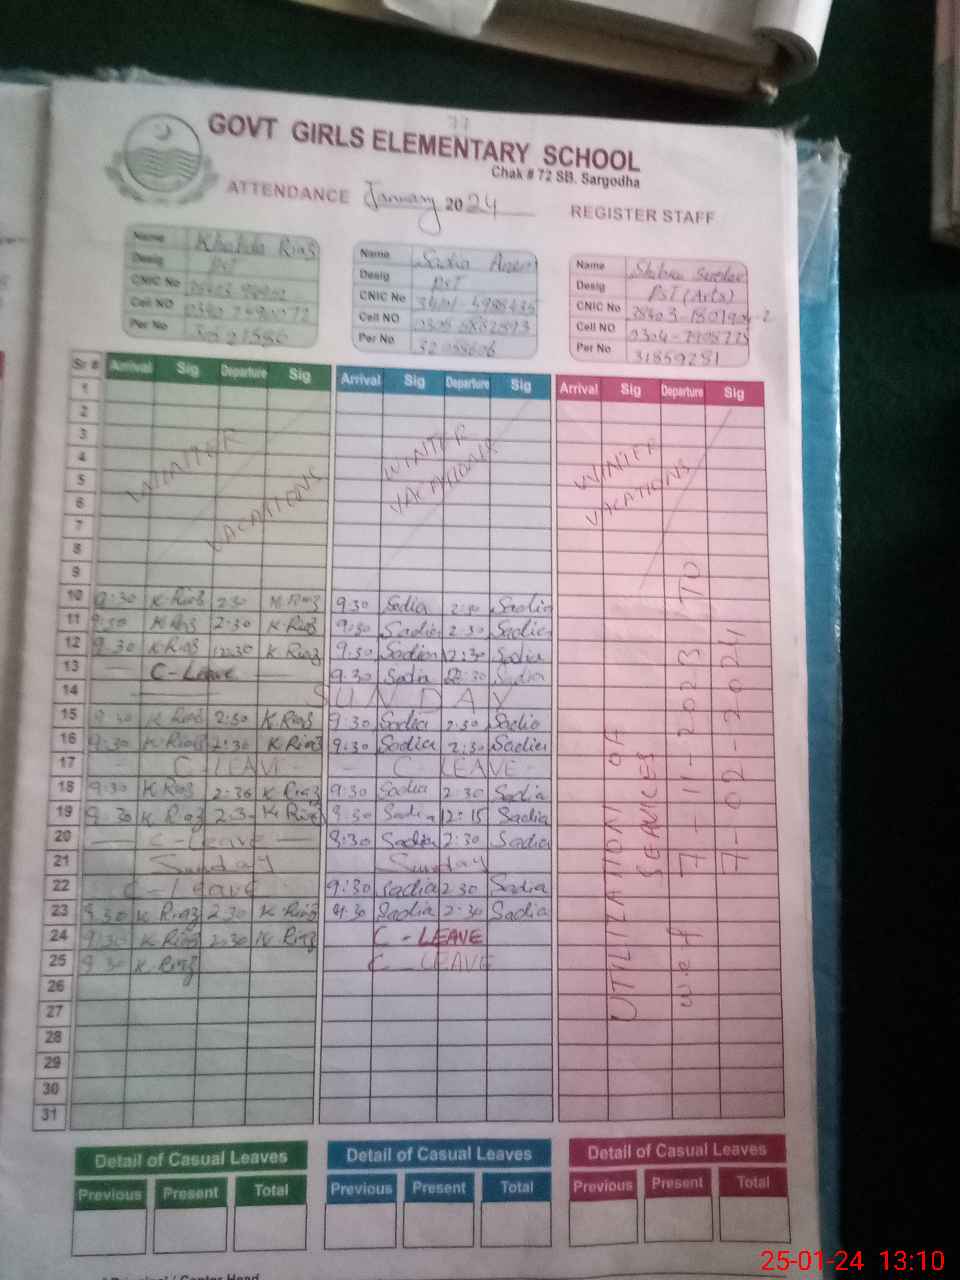 GOVT GIRLS ELEMENTARY SCHOOL
Chak # 72 SB. Sargodha
ATTENDANCE January 2024 REGISTER STAFF
Name Khalida Riaz
Desig PST
CNIC No
Cell NO
Per No
Name Sadia
Desig PST
CNIC No
Cell NO
Per No
Name
Desig PST (Arts)
CNIC No
Cell NO
Per No 31859251
Sr # Arrival Sig Departure Sig Arrival Sig Departure Sig Arrival Sig Departure Sig
1
2
3
4
5
6
7
8
9
WINTER VACATIONS
WINTER VACATIONS
WINTER VACATIONS
10 9:30 K Riaz 2:30 9:30 Sadia Sadia
11 9:30 2:30 K-Riaz 9:30 Sadia 2:30 Sadia
12 9:30 K-Riaz 12:30 K Riaz 9:30 Sadia 12:30 Sadia
13 C-Leave 9:30 Sadia Sadia
14 SUNDAY
15 9:30 K Riaz 2:30 K.Riaz 9:30 Sadia 2:30 Sadia
16 9:30 K Riaz 2:30 K Riaz 9:30 Sadia 2:30 Sadia
17 C LEAVE C-LEAVE
18 9:30 K Riaz 2:30 K Riaz 9:30 Sadia 2:30 Sadia
19 9:30 K Riaz 2:30 K Riaz 9:30 Sadia 12:15 Sadia
20 C-Leave Sadia 2:30 Sadia
21 Sunday Sunday
22 C-Leave 9:30 Sadia 2:30 Sadia
23 9:30 K Riaz 2:30 K Riaz 9:30 Sadia 2:30 Sadia
24 9:30 K Riaz 2:30 K Riaz C-LEAVE
25 9:30 K-Riaz C-LEAVE
26
27
28
29
30
31
UTILIZATION OF
LEAVICES
w.e.f 7-11-2023 TO
7-02-2024
Detail of Casual Leaves Detail of Casual Leaves Detail of Casual Leaves
Previous Present Total Previous Present Total Previous Present Total
25-01-24 13:10